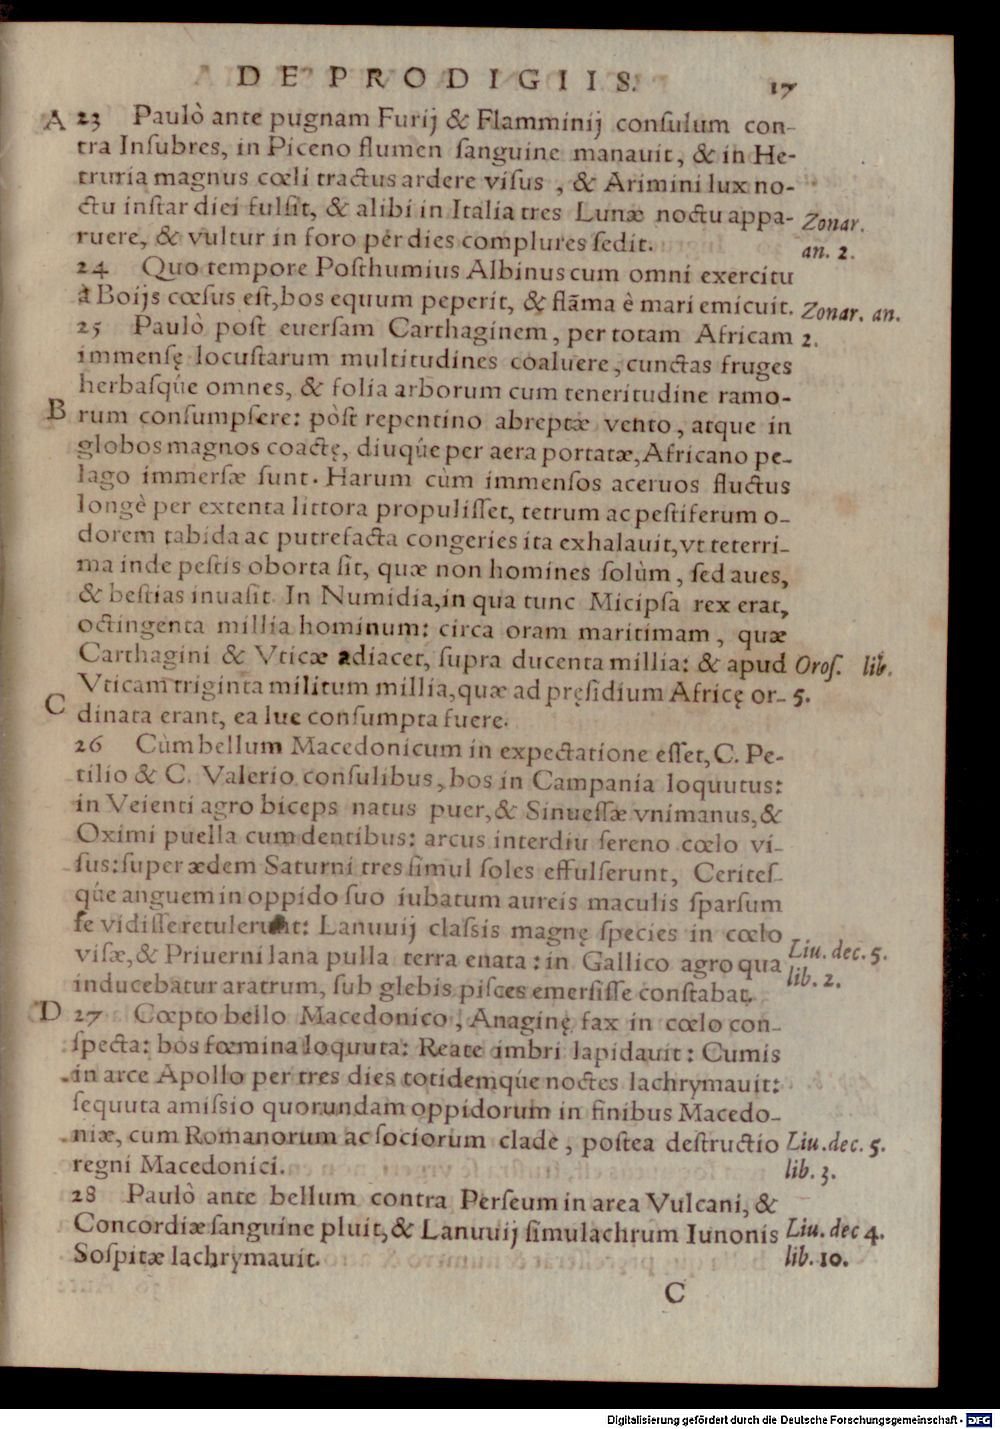 DE PRODIGIIS. 17
A 23 Paulò ante pugnam Furij & Flamminij consulum con-
tra Insubres, in Piceno flumen sanguine manauit, & in He-
truria magnus cœli tractus ardere visus , & Arimini lux no-
ctu instar diei fulsit, & alibi in Italia tres Lunæ noctu appa- Zonar.
ruere, & vultur in foro per dies complures sedit. an. 2.
24 Quo tempore Posthumius Albinus cum omni exercitu
à Boijs cœsus est, bos equum peperit, & flãma è mari emicuit. Zonar. an.
25 Paulò post euersam Carthaginem, per totam Africam 2.
immensę locustarum multitudines coaluere, cunctas fruges
herbasqúe omnes, & folia arborum cum teneritudine ramo-
B rum consumpsere: pòst repentino abreptæ vento, atque in
globos magnos coactę, diuqúe per aera portatæ, Africano pe-
lago immersæ sunt. Harum cùm immensos aceruos fluctus
longè per extenta littora propulisset, tetrum ac pestiferum o-
dorem tabida ac putrefacta congeries ita exhalauit, vt teterri-
ma inde pestis oborta sit, quæ non homines solùm, sed aues,
& bestias inuasit. In Numidia, in qua tunc Micipsa rex erat,
octingenta millia hominum: circa oram maritimam, quæ
Carthagini & Vticæ adiacet, supra ducenta millia: & apud Oros. lib.
Vticam triginta militum millia, quæ ad pręsidium Africę or- 5.
C dinata erant, ea lue consumpta fuere.
26 Cùm bellum Macedonicum in expectatione esset, C. Pe-
tilio & C. Valerio consulibus, bos in Campania loquutus:
in Veienti agro biceps natus puer, & Sinuessæ vnimanus, &
Oximi puella cum dentibus: arcus interdiu sereno cœlo vi-
sus: super ædem Saturni tres simul soles effulserunt, Cerites-
qúe anguem in oppido suo iubatum aureis maculis sparsum
se vidisse retulerunt: Lanuuij classis magnę species in cœlo
visæ, & Priuerni lana pulla terra enata: in Gallico agro qua Liu. dec. 5.
inducebatur aratrum, sub glebis pisces emersisse constabat. lib. 2.
D 27 Cœpto bello Macedonico, Anaginę fax in cœlo con-
specta: bos fœmina loquuta: Reate imbri lapidauit: Cumis
in arce Apollo per tres dies totidemqúe noctes lachrymauit:
sequuta amissio quorundam oppidorum in finibus Macedo-
niæ, cum Romanorum ac sociorum clade, postea destructio Liu. dec. 5.
regni Macedonici. lib. 3.
28 Paulò ante bellum contra Perseum in area Vulcani, &
Concordiæ sanguine pluit, & Lanuuij simulachrum Iunonis Liu. dec 4.
Sospitæ lachrymauit. lib. 10.
C
Digitalisierung gefördert durch die Deutsche Forschungsgemeinschaft - DFG